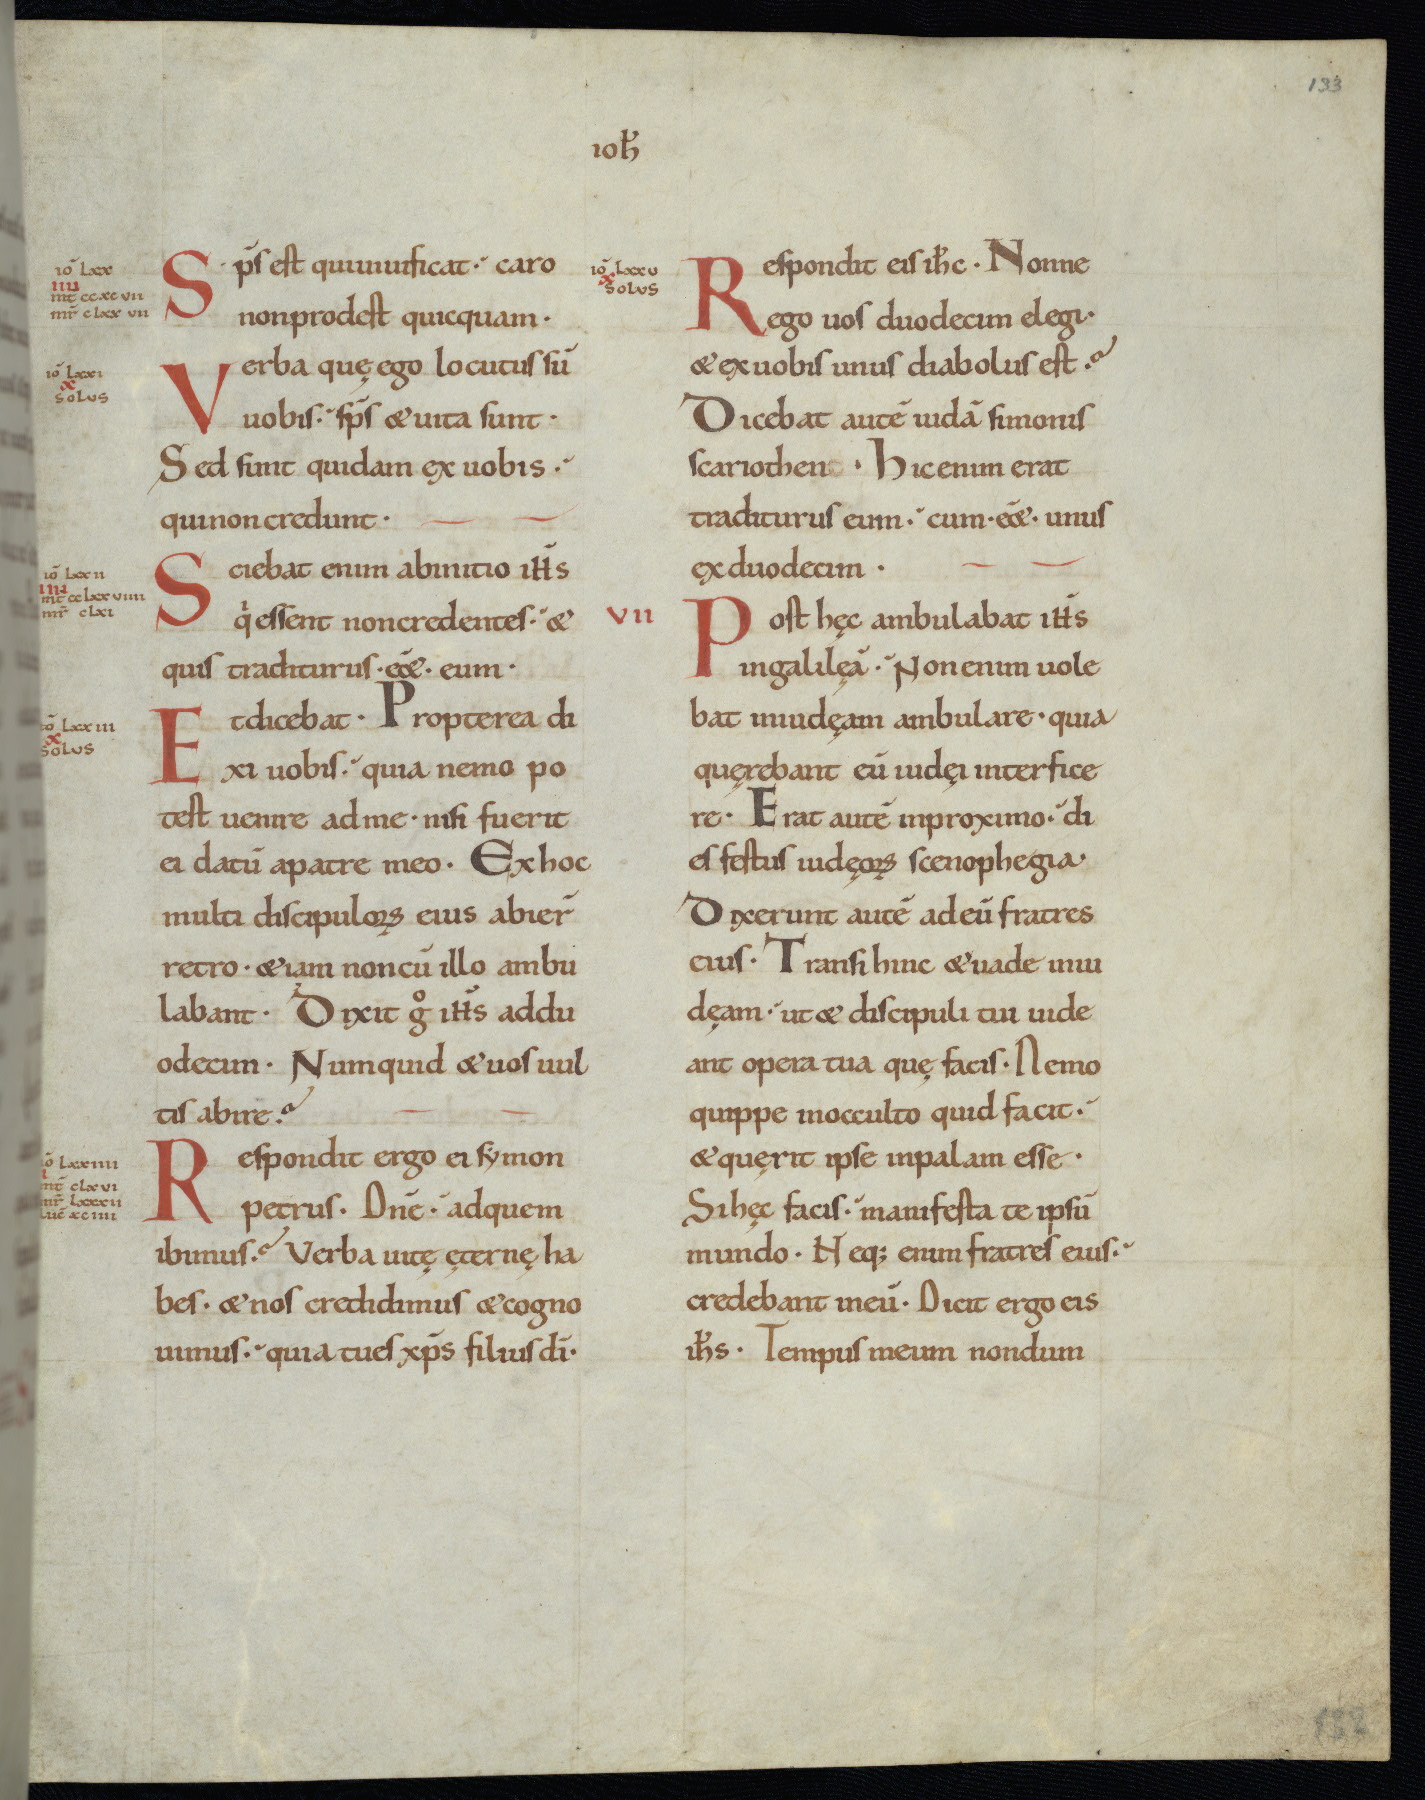 133
ioħ
iō lxx
IIII
mt̄ ccxcvii
mr̄ clxxvii
Sp̄s est quiuiuificat· caro
nonprodest quicquam·
iō lxxi
x
solus
Verba quę ego locutus sū
uobis· sp̄s & uita sunt·
Sed sunt quidam ex uobis·
quinoncredunt·
iō lxxii
IIII
mt̄ cclxxviiii
mr̄ clxi
Sciebat enim abinitio iħs
qi essent noncredentes· &
quis traditurus·eēt· eum·
iō lxxiii
x
solus
Etdicebat· Propterea di
xi uobis· quia nemo po
test uenire adme· nisi fuerit
ei datū apatre meo· Exhoc
multi discipuloꝝ eius abier̄
retro· &iam noncū illo ambu
labant· Dixit gͦ iħs addu
odecim· Numquid &uos uul
tis abire?
iō lxxiiii
I
mt̄ clxvi
mr̄ lxxxii
luc̄ xciiii
Respondit ergo ei symon
petrus· Dn̄e· adquem
ibimus? Verba uitę ęternę ha
bes· &nos credidimus &cogno
uimus· quia tues xp̄s filius dī·
iō lxxv
x
solus
Respondit eis iħc· Nonne
ego uos duodecim elegi·
&exuobis unus diabolus est?
Dicebat autē iudā simonis
scariothen · Hicenim erat
traditurus eum· cum·eēt· unus
exduodecim·
VII
Post hęc ambulabat iħs
ingalilęā· Nonenim uole
bat iniudęam ambulare· quia
quęrebant eū iudęi interfice
re· Erat autē inproximo· di
es festus iudęoꝝ scenophegia·
Dixerunt autē adeū fratres
eius· Transi hinc &uade iniu
dęam· ut& discipuli tui uide
ant opera tua quę facis· Nemo
quippe inocculto quid facit·
&quęrit ipse inpalam esse·
Sihęc facis· manifesta te ipsū
mundo· Neq; enim fratres eius·
credebant ineū· Dicit ergo eis
iħs· Tempus meum nondum